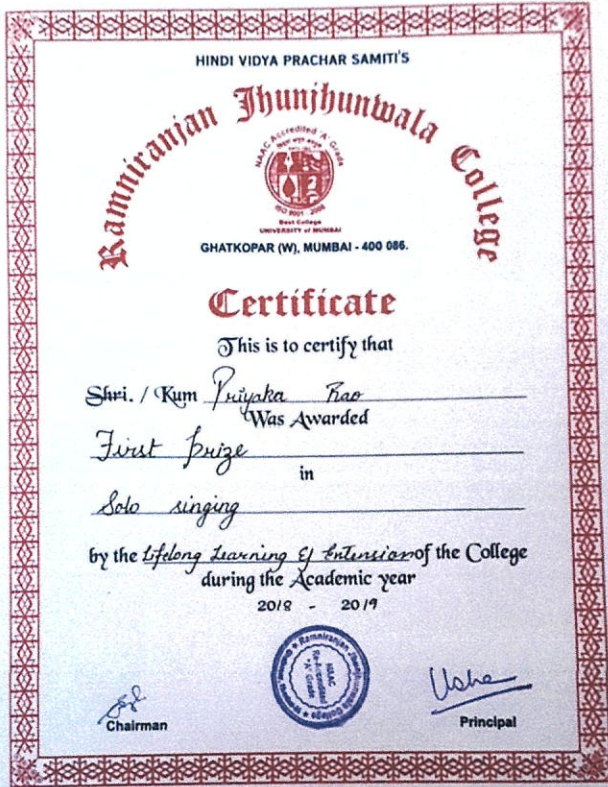 HINDI VIDYA PRACHAR SAMITI'S
Ramniranjan Jhunjhunwala College
NAAC Accredited 'A' Grade
ISO 9001 : 2008
Best College
UNIVERSITY of MUMBAI
GHATKOPAR (W), MUMBAI - 400 086.
Certificate
This is to certify that
Shri. / Kum Priyaka Rao
Was Awarded
First prize
in
Solo singing
by the Lifelong Learning & Extension of the College
during the Academic year
2018 - 2019
Ramniranjan Jhunjhunwala College
NAAC
Re-Accredited
'A' Grade
Usha
Chairman
Principal